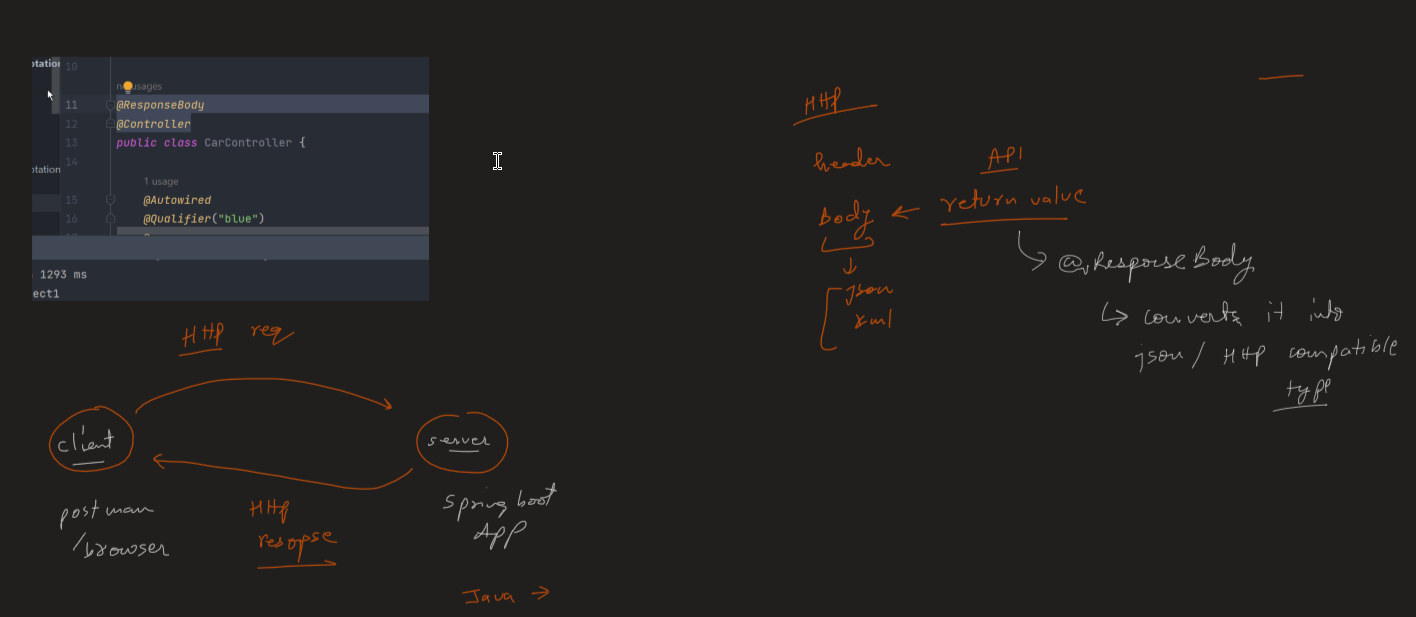 otation
10
no usages
11 @ResponseBody
12 @Controller
13 public class CarController {
14
otation
1 usage
15 @Autowired
16 @Qualifier("blue")
1293 ms
ect1
HTTP req
client
server
postman
/browser
HTTP
resopse
spring boot
APP
Java →
HTTP
header
API
Body ← return value
@ResponseBody
json
xml
converts it into
json / HTTP compatible
type